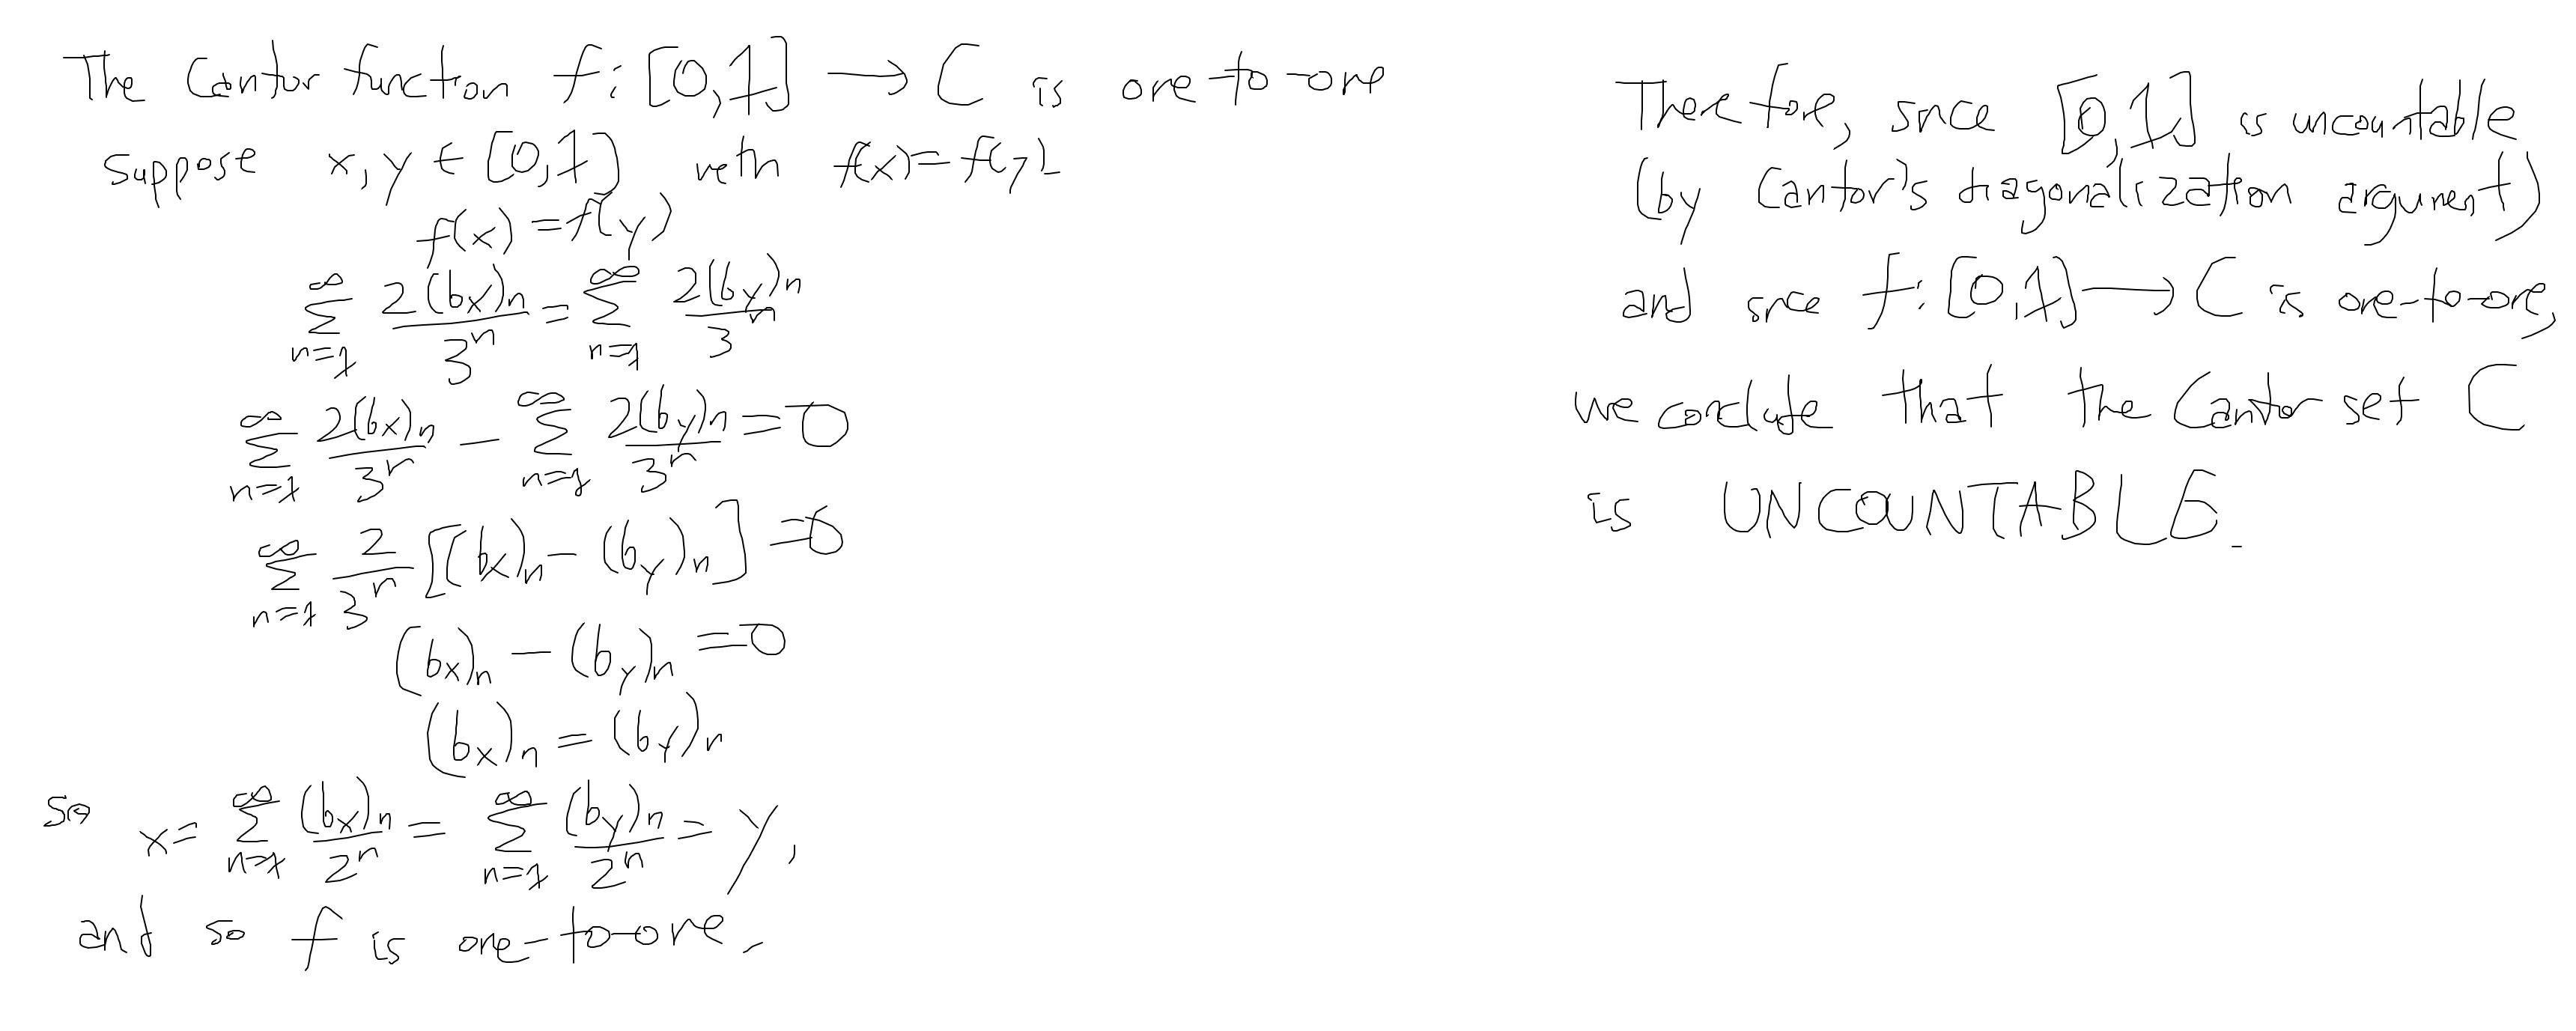 The Cantor function f: [0,1] → C is one-to-one
Suppose x, y ∈ [0,1] with f(x) = f(y)
f(x) = f(y)
∑_{n=1}^{∞} 2(b_x)_n / 3^n = ∑_{n=1}^{∞} 2(b_y)_n / 3^n
∑_{n=1}^{∞} 2(b_x)_n / 3^n − ∑_{n=1}^{∞} 2(b_y)_n / 3^n = 0
∑_{n=1}^{∞} 2 / 3^n [(b_x)_n − (b_y)_n] = 0
(b_x)_n − (b_y)_n = 0
(b_x)_n = (b_y)_n
so x = ∑_{n=1}^{∞} (b_x)_n / 2^n = ∑_{n=1}^{∞} (b_y)_n / 2^n = y,
and so f is one-to-one.
Therefore, since [0,1] is uncountable
(by Cantor's diagonalization argument)
and since f: [0,1] → C is one-to-one,
we conclude that the Cantor set C
is UNCOUNTABLE.